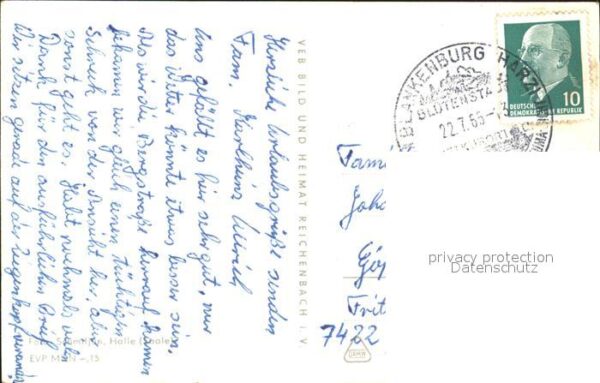 Herzliche Urlaubsgrüße senden
Fam. Karlheinz Ullrich
Uns gefällt es hier sehr gut, nur
das Wetter könnte etwas besser sein.
Als wir die Bergstraße herauf kamen
bekamen wir gleich einen tüchtigen
Schreck von der Ansicht her, aber
sonst geht es. Habt nochmals vielen
Dank für den ausführlichen Brief.
Wir sitzen gerade auf der Ziegenkopfveranda
VEB BILD UND HEIMAT REICHENBACH I. V.
Halle (Saale)
EVP MDN -,15
BLANKENBURG HARZ
BLÜTENSTADT
22.7.65
DEUTSCHE
DEMOKRATISCHE REPUBLIK
10
Fami
Joha
Gö
Frit
7422
privacy protection
Datenschutz